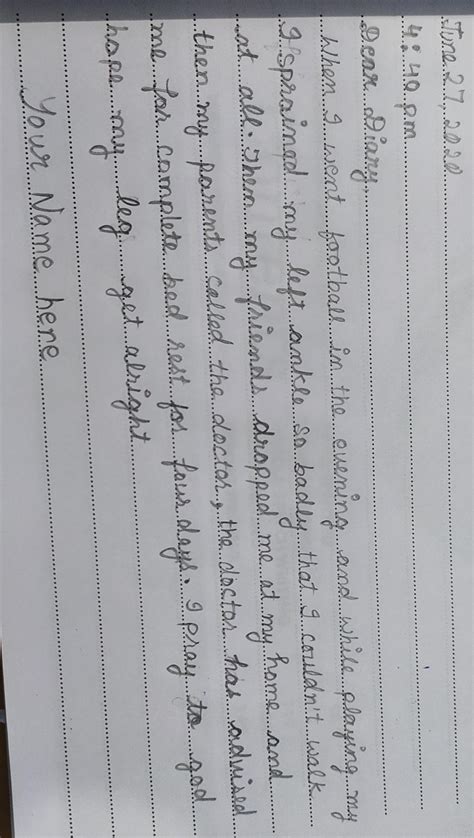 June 27, 2020
4:40 pm
Dear Diary
When I went football in the evening and while playing my
I spraingd my left ankle so badly that I couldn't walk
at all. Then my friends dropped me at my home and
then my parents called the doctor, the doctor has advised
me for complete bed rest for four days. I pray to god
hope my leg get alright
Your Name here